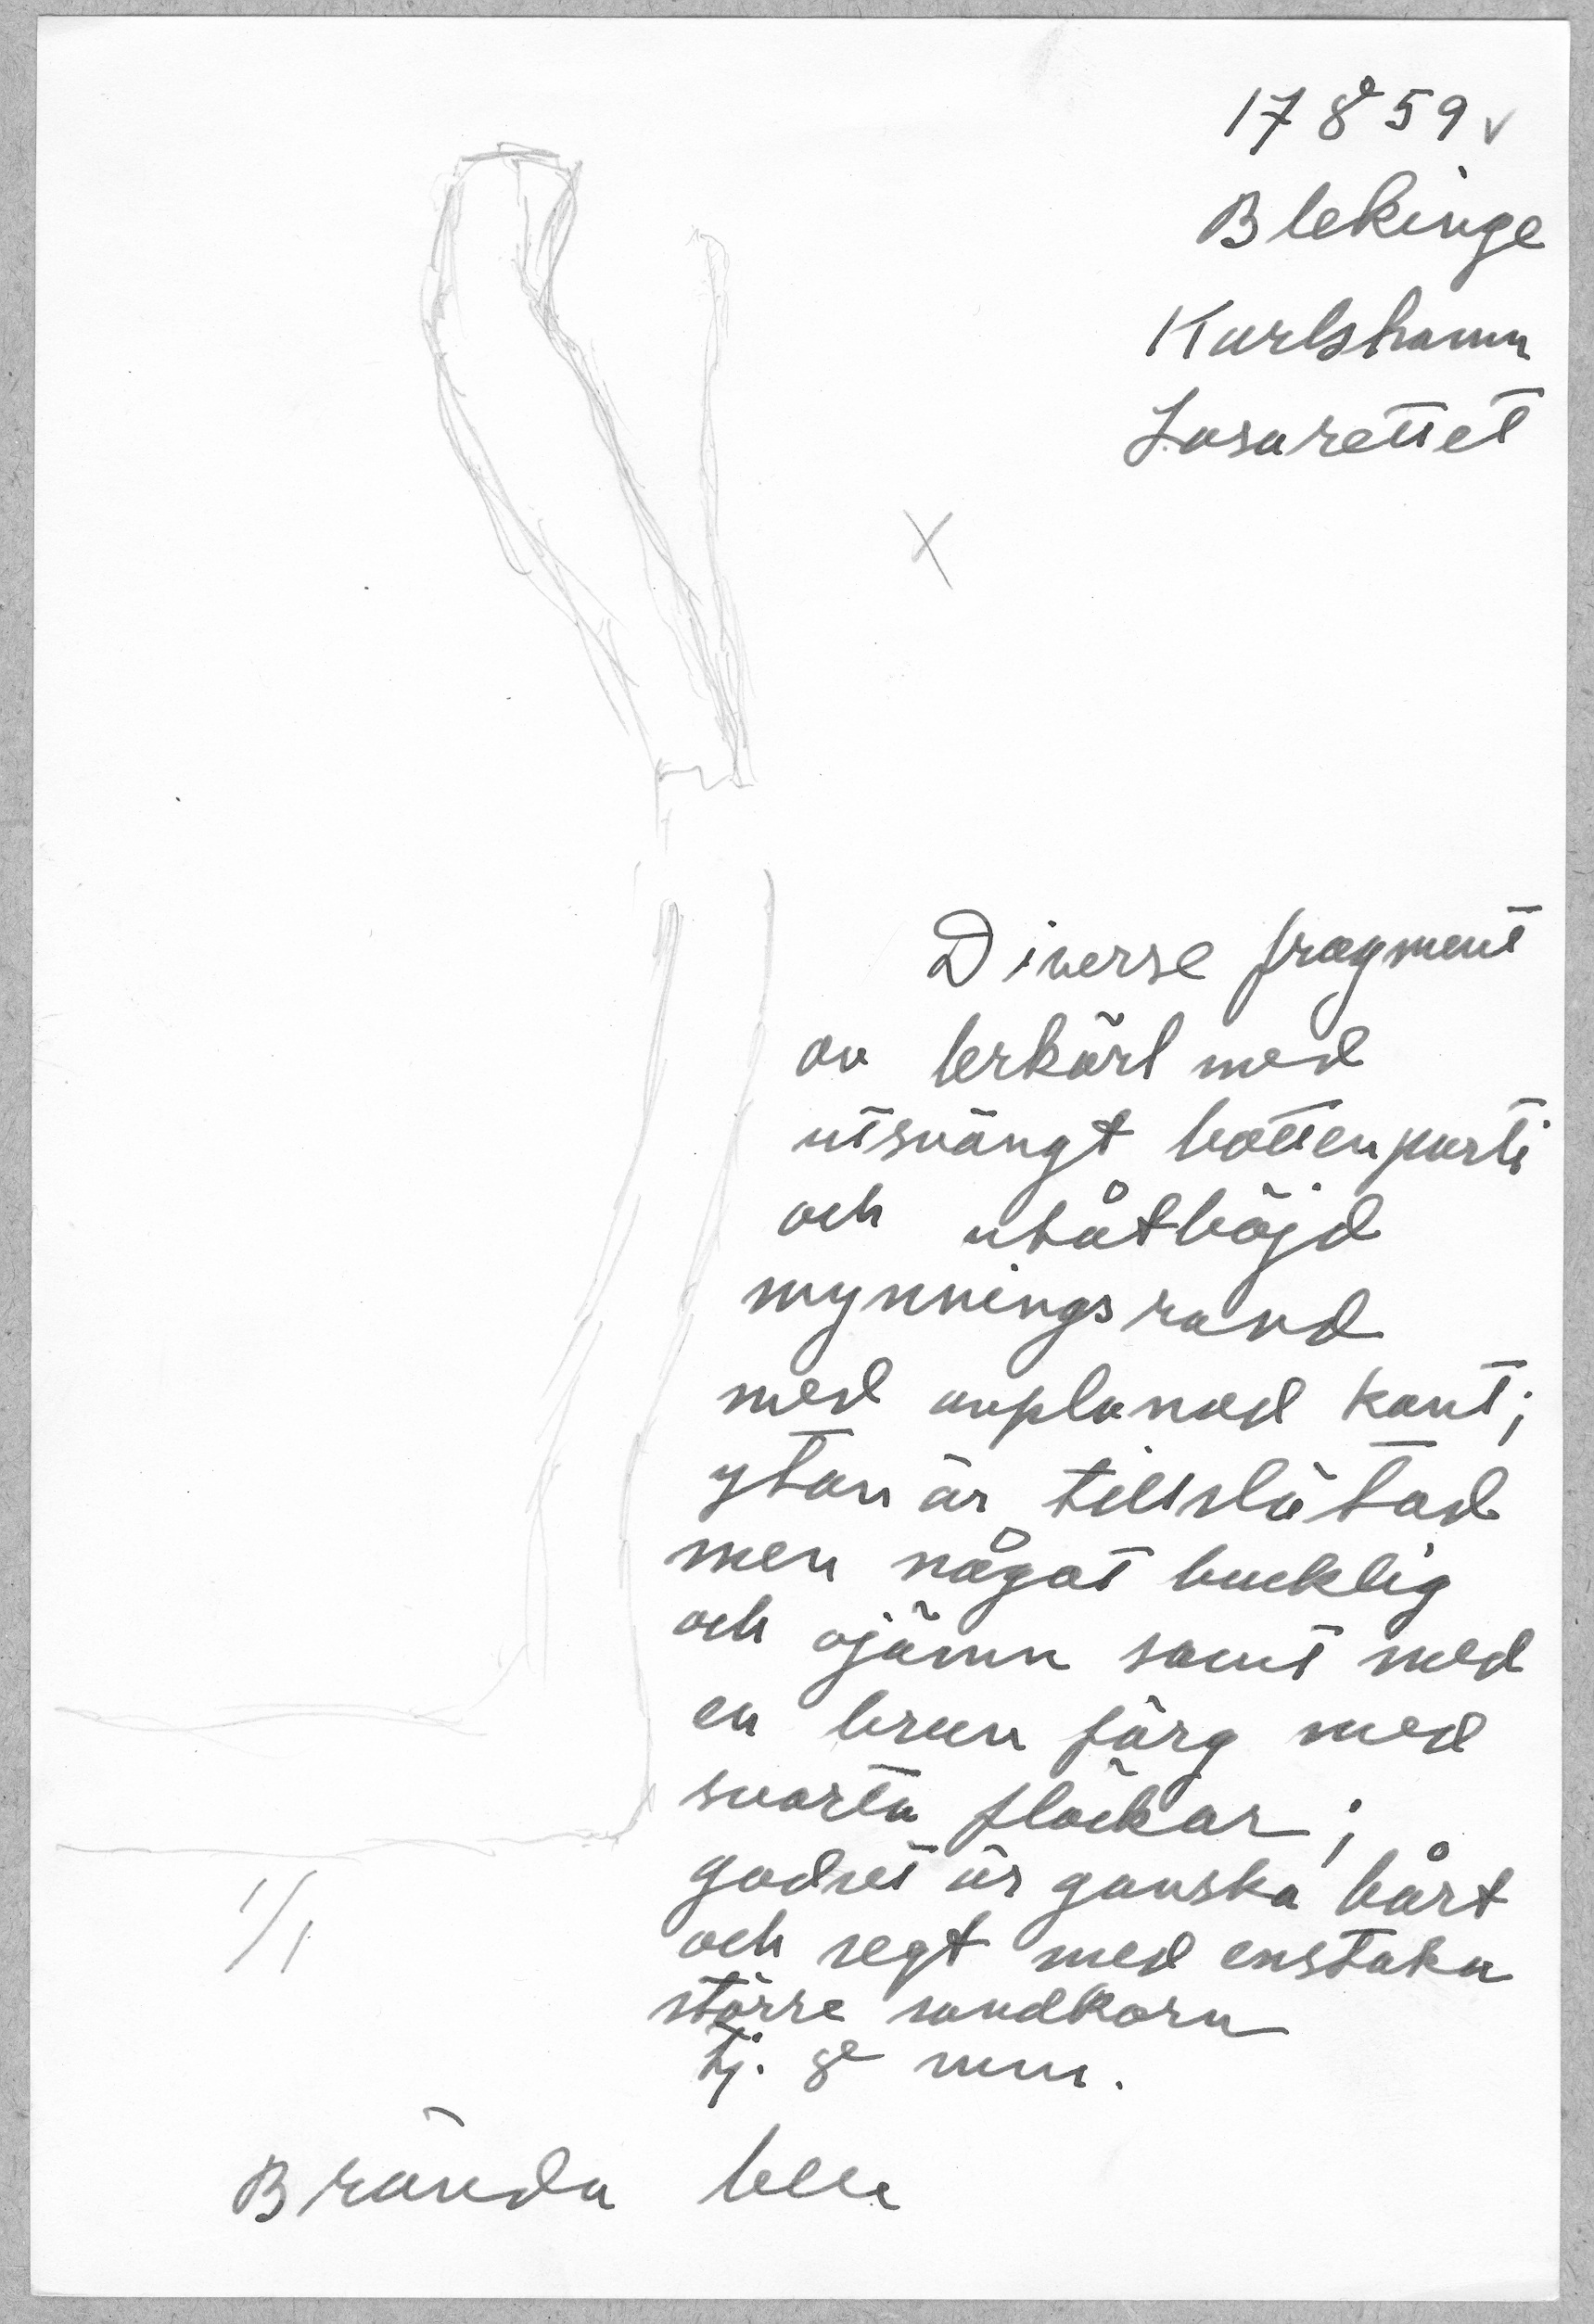 17859 v
Blekinge
Karlshamn
Lasarettet
x
Diverse fragment
av lerkärl med
utsvängt bottenparti
och utåtböjd
mynningsrand
med avplanad kant;
ytan är tillslätad
men något bucklig
och ojämn samt med
en brun färg med
svarta fläckar;
godset är ganska hårt
och segt med enstaka
större sandkorn
tj. 8 mm.
1/1
Brända ben